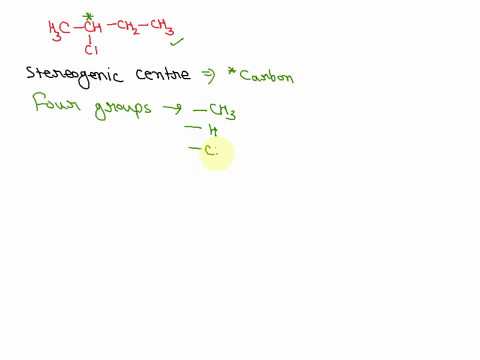 *
H₃C—CH—CH₂—CH₃
|
Cl
✓
Stereogenic centre ⇒ *Carbon
Four groups → —CH₃
— H
— C